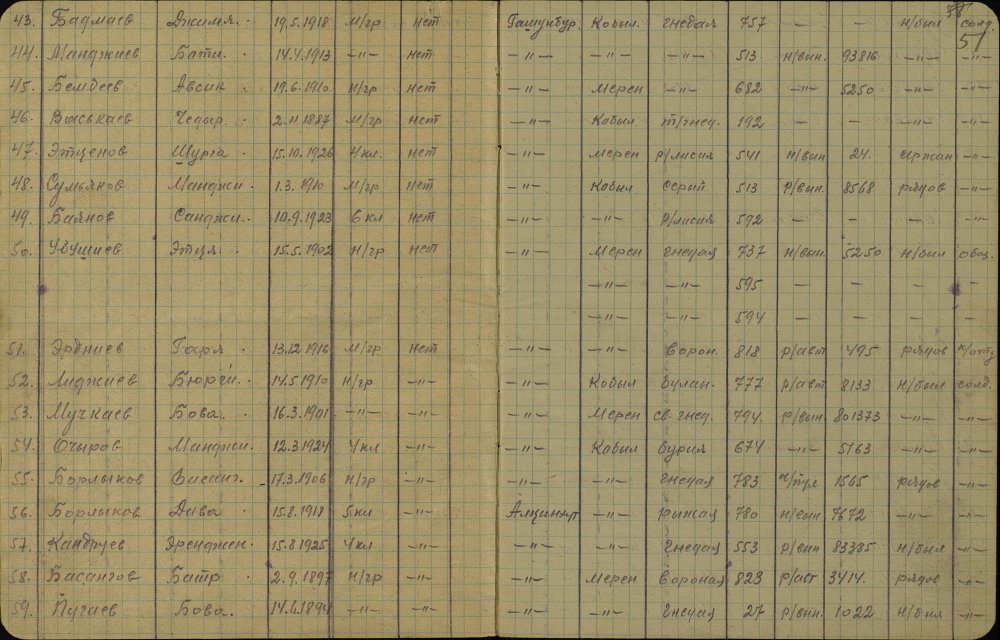 43. Бадмаев Джимя. 19.5.1918 м/гр нет Гашунбур. Кобыл. гнедая 757 — — н/был солд.
51
44. Манджиев Бату. 14.4.1913 —"— нет —"— —"— —"— 513 н/вин. 93816 —"— —"—
45. Бембеев Авсик. 19.6.1910 н/гр нет —"— Мерен —"— 682 —"— 5250 —"— —"—
46. Васькаев Чедыр. 2.11.1887 м/гр нет —"— Кобыл т/гнед. 192 — — —"— —"—
47. Этценов Шурга. 15.10.1926 4кл. нет —"— мерен р/лисия 541 н/вин 24. сержан —"—
48. Сульянов Манджи. 1.3.1910 м/гр нет —"— Кобыл Серый 513 р/вин. 8568 рядов —"—
49. Баянов Санджи. 10.9.1923 6кл нет —"— —"— р/лисия 592 — — — —"—
50. Убушиев Этця. 15.5.1902 н/гр нет —"— Мерен гнедая 737 н/вин. 5250 н/был обоз.
—"— —"— 595 — — — —
—"— —"— 594 — — — —
51. Эрдниев Гаря. 13.12.1916 м/гр нет —"— —"— Ворон. 818 р/авт 495 рядов
52. Лиджиев Бюрчи. 14.5.1910 н/гр —"— —"— Кобыл булан. 777 р/авт 8133 н/был солд.
53. Мучкаев Бова. 16.3.1901 —"— —"— —"— Мерен св. гнед. 794. р/вин. 801373 —"— —"—
54. Очыров Манджи. 12.3.1924 4кл —"— —"— Кобыл бурия 674 —"— 5163 —"— —"—
55. Борлыков Басанг. 17.3.1906 н/гр —"— —"— —"— гнедая 783 1565 рядов —"—
56. Борлыков Дава. 15.8.1918 5кл —"— —"— рыжая 780 н/вин 7672 —"— —"—
57. Кандуев Эренджен. 15.8.1925 4кл —"— —"— —"— гнедая 553 р/вин 83385 н/был —"—
58. Басангов Батр. 2.9.1897 н/гр —"— —"— Мерен Вороная 823 р/авт 3414. рядов —"—
59. Пугаев Бова. 14.6.1894 —"— —"— —"— —"— гнедая 27 р/вин. 1022 н/был —"—